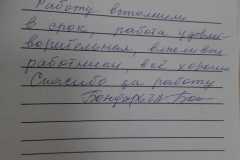 Работу выполнили
в срок, работа удовле
ворительная, вежливые
работники всё хорошо
Спасибо за работу